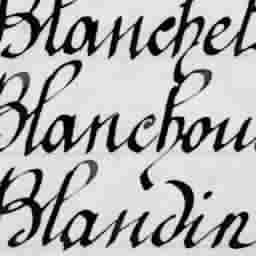 Blanchet
Blanchou
Blandin